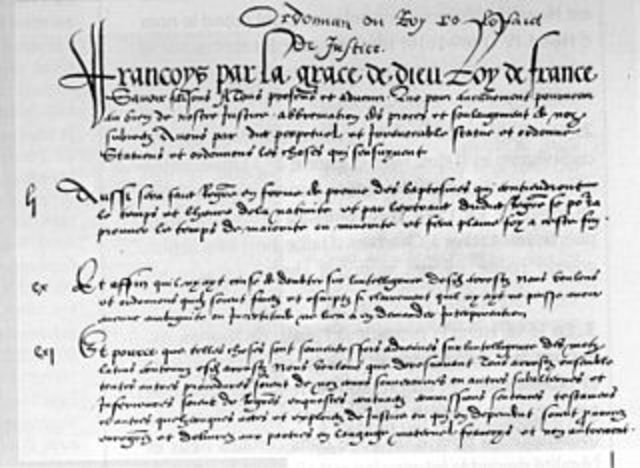 Ordonnan du Roy
De Justice.
Françoys par la grace de dieu Roy de france
Savoir faisons A Tous presens et advenir Que pour aucunement pourveoir
au bien de nostre Justice abbreviation des proces et soulagement de noz
subiectz Avons par edict perpetuel et Irrevocable statue et ordonne
Statuons et ordonnons les choses qui sensuyvent
li Aussi sera faict Regre en forme de preuve des baptesmes qui contiendront
le temps et lheure de la nativite et par lextraict dudict Regre se pora
prouver le temps de majorite ou minorite et fera plaine foy a ceste fin
cx Et affin quil ny ayt cause de doubter sur lintelligence desd arrestz Nous voulons
et ordonnons quilz soient faictz et escriptz si clairement quil ny ayt ne puisse avoir
aucune ambiguite ou Incertitude ne lieu a en demander Interpretation
cxi Et pource que telles choses sont souvent advenues sur lintelligence des motz
latins contenuz esd arrestz Nous voulons que doresnavant Tous arrestz ensemble
toutes autres procedures soient de noz cours souveraines ou autres subalternes et
Inferieures soient de Regres enquestes contractz commissions sentences testamens
et autres quelzconques actes et exploictz de Justice ou qui en dependent soient prononcez
enregrez et delivrez aux parties en langage maternel francoys et non autrement.